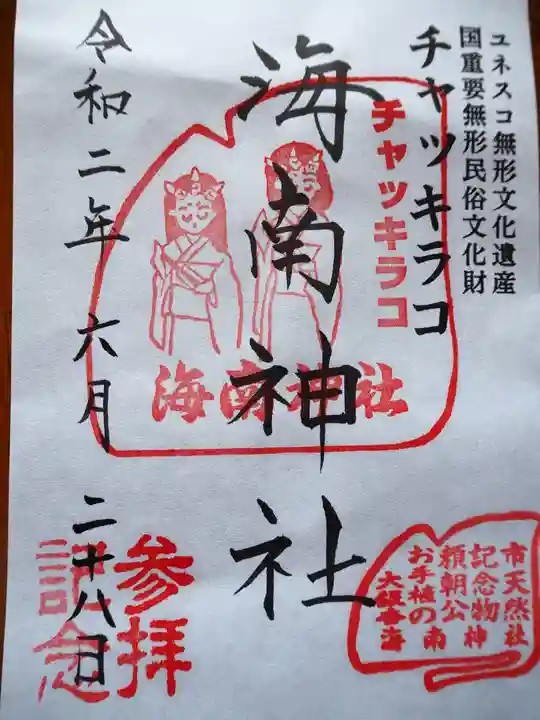 ユネスコ無形文化遺産
国重要無形民俗文化財
チャッキラコ
チャッキラコ
海南神社
海南神社
令和二年 六月 二十八日
参拝
記念
市天然
記念物
頼朝公
お手植の
社
神
南
海